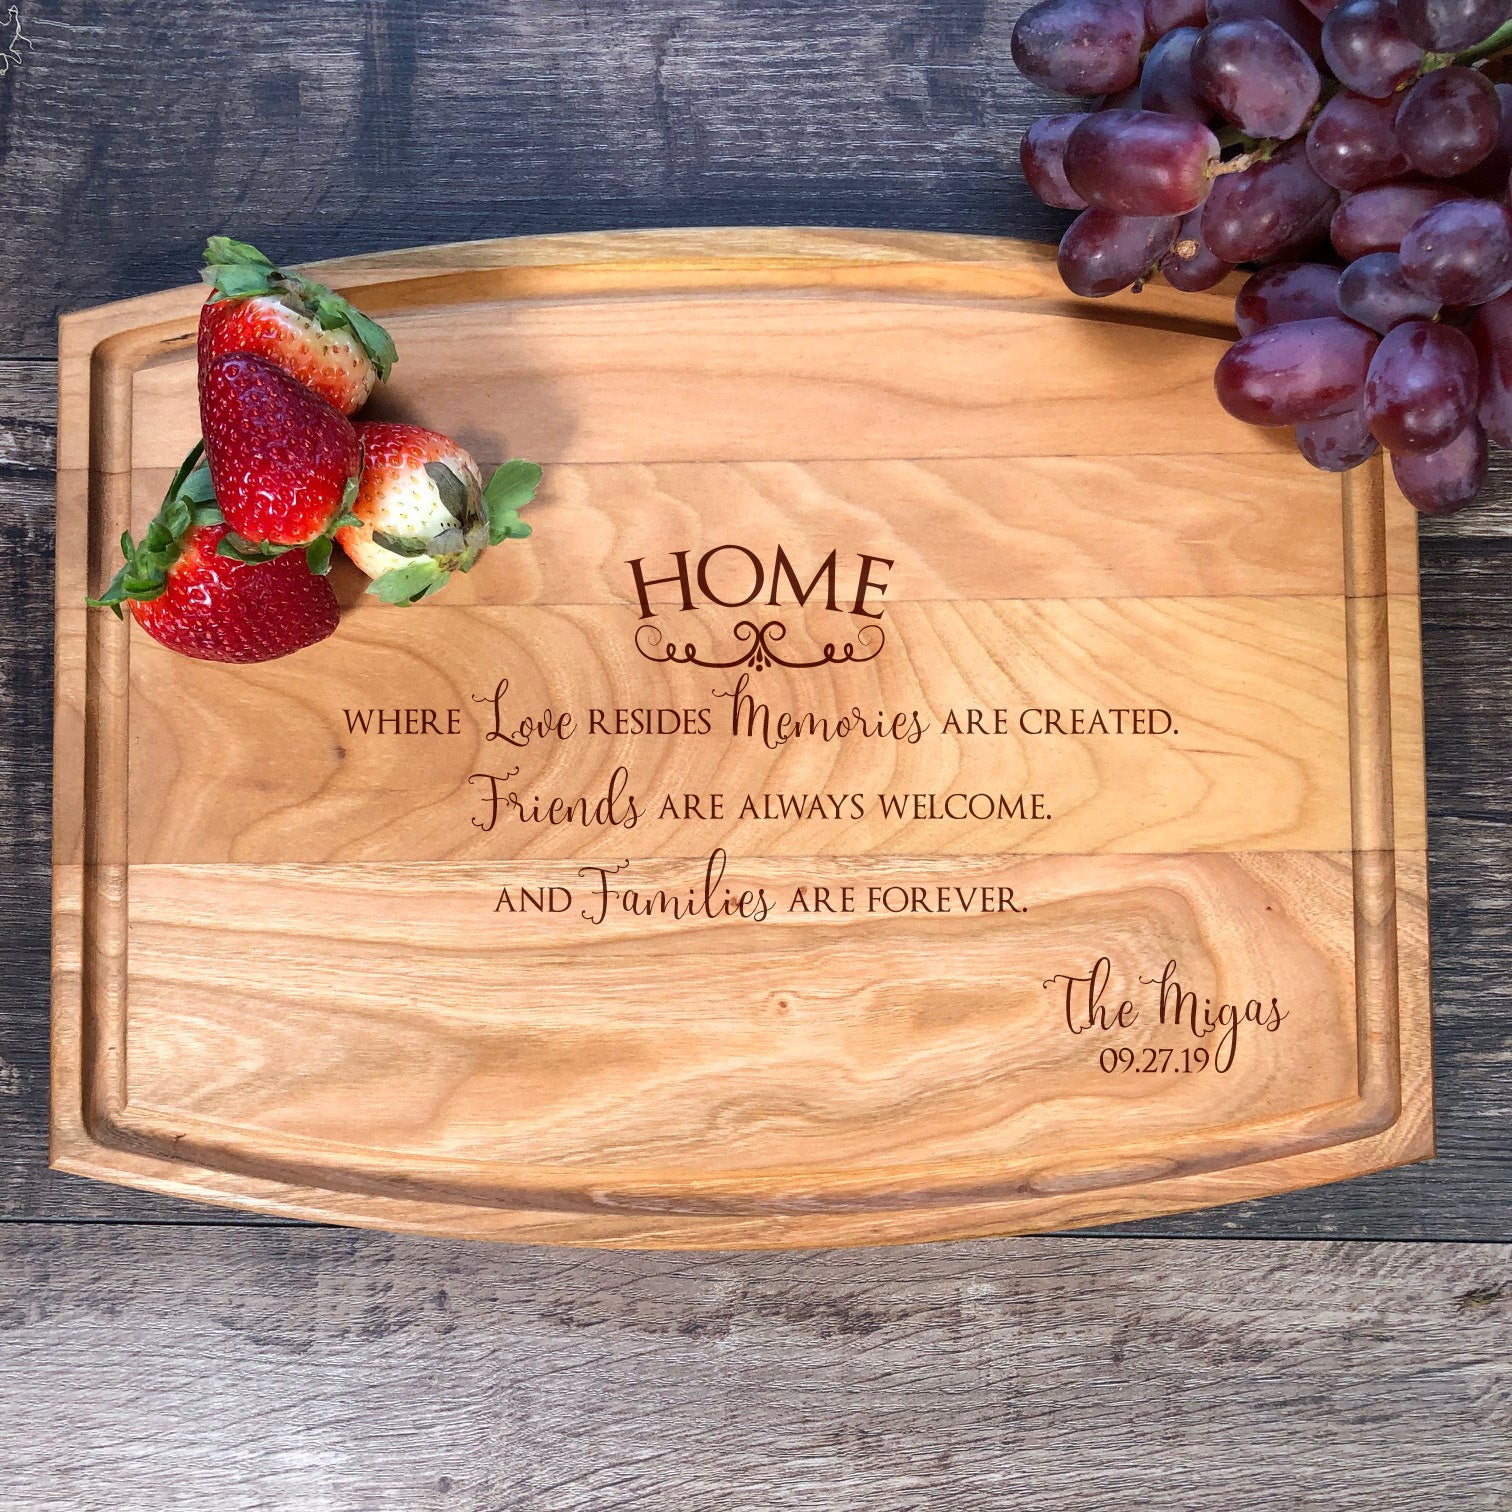 HOME
WHERE Love RESIDES Memories ARE CREATED.
Friends ARE ALWAYS WELCOME.
AND Families ARE FOREVER.
The Migas
09.27.19